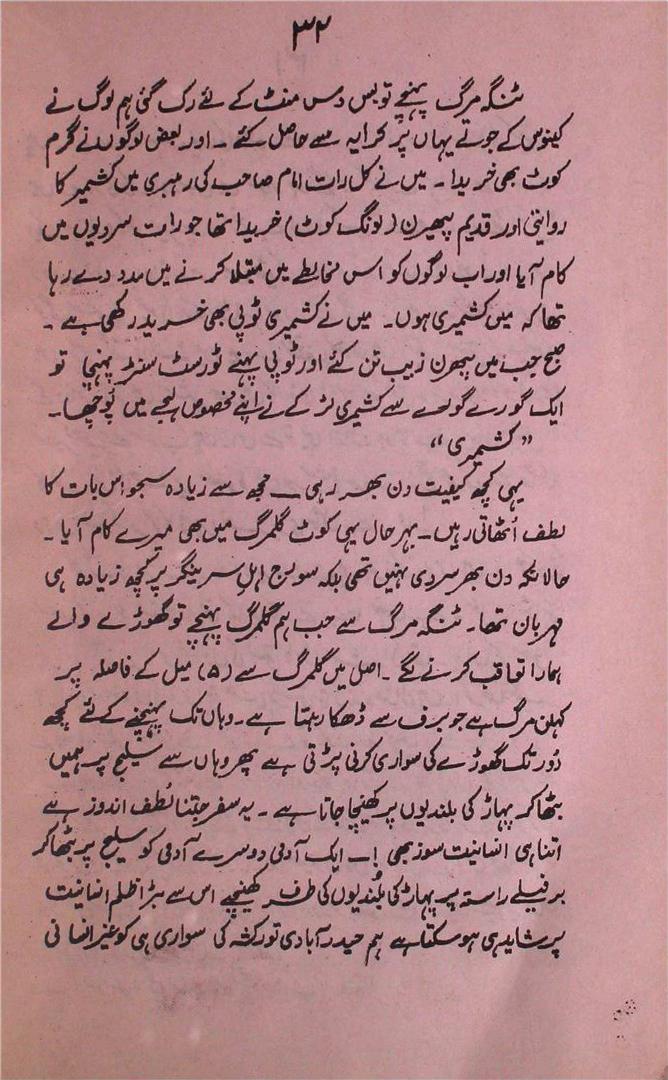 ۳۲
ٹنگہ مرگ پہنچے تو بس دس منٹ کے لئے رک گئی ہم لوگ نے
کینوس کے جوتے یہاں پر کرایہ سے حاصل کئے ۔ اور بعض لوگوں نے گرم
کوٹ بھی خریدا ۔ میں نے کل رات امام صاحب کی رہبری میں کشمیر کا
روایتی اور قدیم پھیرن (لونگ کوٹ) خریدا تھا جو رات سردیوں میں
کام آیا اور اب لوگوں کو اس مغالطے میں مبتلا کرنے میں مدد دے رہا
تھا کہ میں کشمیری ہوں ۔ میں نے کشمیری ٹوپی بھی خرید رکھی ہے ۔
صبح جب میں پھرن زیب تن کئے اور ٹوپی پہنے ٹورسٹ سنٹر پہنچا تو
ایک گورے گورے سے کشمیری لڑکے نے اپنے مخصوص لہجے میں پوچھا ۔
”کشمیری“
یہی کچھ کیفیت دن بھر رہی ــ مجھ سے زیادہ سبجو اس بات کا
لطف اُٹھاتی رہیں ۔ بہر حال یہی کوٹ گلمرگ میں بھی میرے کام آیا ۔
حالانکہ دن بھر سردی نہیں تھی بلکہ سورج اہلِ سرینگر پر کچھ زیادہ ہی
مہربان تھا ۔ ٹنگہ مرگ سے جب ہم گلمرگ پہنچے تو گھوڑے والے
ہمارا تعاقب کرنے لگے ۔ اصل میں گلمرگ سے (۵) میل کے فاصلہ پر
کہلن مرگ ہے جو برف سے ڈھکا رہتا ہے ۔ وہاں تک پہنچنے کے لئے کچھ
دُور تک گھوڑے کی سواری کرنی پڑتی ہے پھر وہاں سے سلیج پر ہمیں
بٹھا کر پہاڑ کی بلندیوں پر کھینچا جاتا ہے ۔ یہ سفر جتنا لُطف اندوز ہے
اتنا ہی انسانیت سوز بھی !ــ ایک آدمی دوسرے آدمی کو سلیج پر بٹھا کر
برفیلے راستہ پر پہاڑ کی بُلندیوں کی طرف کھینچے اس سے بڑا ظلم انسانیت
پر شاید ہی ہو سکتا ہے ہم حیدرآبادی تو رکشہ کی سواری ہی کو غیر انسانی